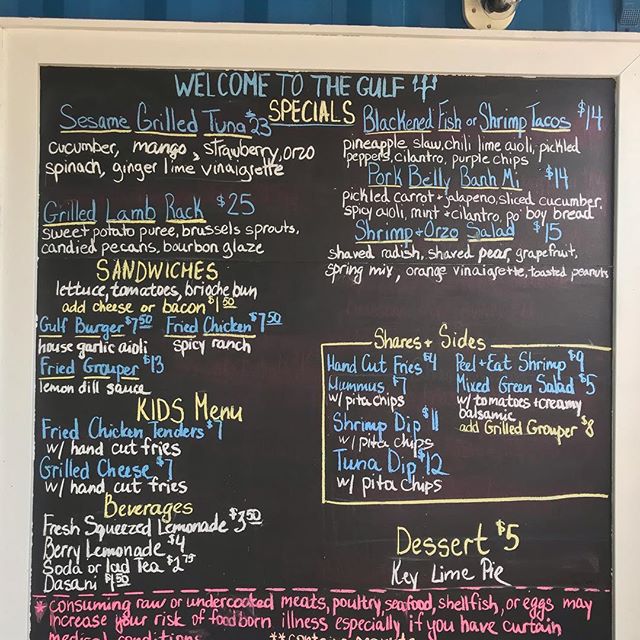 WELCOME TO THE GULF
SPECIALS
Sesame Grilled Tuna $23
cucumber, mango, strawberry, orzo
spinach, ginger lime vinaigrette
Grilled Lamb Rack $25
sweet potato puree, brussels sprouts,
candied pecans, bourbon glaze
Blackened Fish or Shrimp Tacos $14
pineapple slaw, chili lime aioli, pickled
peppers, cilantro, purple chips
Pork Belly Banh Mi $14
pickled carrot + jalapeno, sliced cucumber,
spicy aioli, mint + cilantro, po' boy bread
Shrimp + Orzo Salad $15
shaved radish, shaved pear, grapefruit,
spring mix, orange vinaigrette, toasted peanuts
SANDWICHES
lettuce, tomatoes, brioche bun
add cheese or bacon $1.50
Gulf Burger $7.50 Fried Chicken $7.50
house garlic aioli spicy ranch
Fried Grouper $13
lemon dill sauce
KIDS Menu
Fried Chicken Tenders $7
w/ hand cut fries
Grilled Cheese $7
w/ hand cut fries
Beverages
Fresh Squeezed Lemonade $3.50
Berry Lemonade $4
Soda or Iced Tea $2.75
Dasani $1.50
Shares + Sides
Hand Cut Fries $4
Hummus $7
w/ pita chips
Shrimp Dip $11
w/ pita chips
Tuna Dip $12
w/ pita chips
Peel + Eat Shrimp $9
Mixed Green Salad $5
w/ tomatoes + creamy
balsamic
add Grilled Grouper $8
Dessert $5
Key Lime Pie
* consuming raw or undercooked meats, poultry, seafood, shellfish, or eggs may
increase your risk of foodborn illness especially if you have curtain
medical conditions